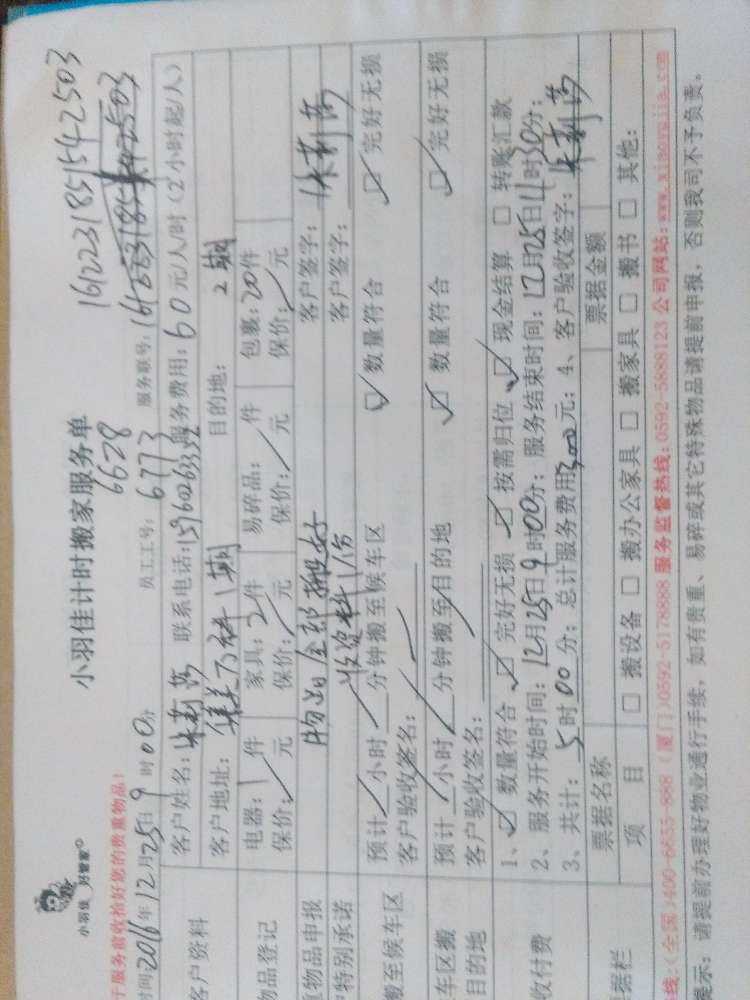 小羽佳 好管家
小羽佳计时搬家服务单
16122318515542503
6628
于服务前收拾好您的贵重物品!
时间:2016年12月25日9时00分 员工工号: 6773 服务联号:
客户资料 客户姓名: 联系电话: 服务费用:60元/人/时(2小时起/人)
客户地址: 1期 目的地: 2期
物品登记 电器:1件 家具:2件 易碎品: 件 包裹:20件
保价: 元 保价: 元 保价: 元 保价: 元
重物品申报 物品全部搬好 客户签字:
特别承诺 客户签字:
搬至候车区 预计 小时 分钟搬至候车区 ☑ 数量符合 ☑ 完好无损
客户验收签名:
车区搬 预计 小时 分钟搬至目的地 ☑ 数量符合 ☑ 完好无损
目的地 客户验收签名:
收付费 1、☑ 数量符合 ☑ 完好无损 ☑ 按需归位 ☑ 现金结算 □ 转账汇款
2、服务开始时间:12月25日9时00分;服务结束时间:12月25日11时30分;
3、共计:5时00分;总计服务费用300元;4、客户验收签字:
据栏 票据名称 票据金额
项 目 □ 搬设备 □ 搬办公家具 □ 搬家具 □ 搬书 □ 其他:
线:(全国)400-6655-888 (厦门)0592-5178888 服务监督热线:0592-5888123 公司网站:www.xiaoyujia.com
提示:请提前办理好物业通行手续,如有贵重、易碎或其它特殊物品请提前申报,否则我司不予负责。